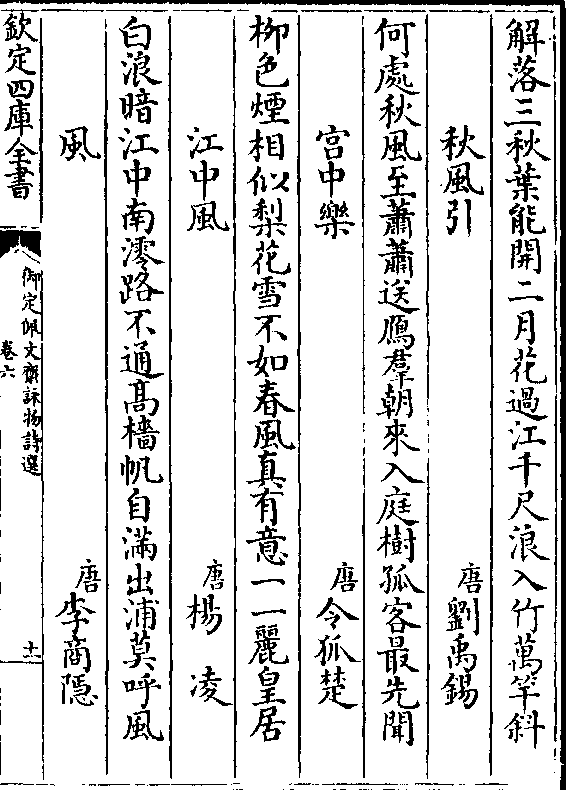 解落三秋葉能開二月花過江千尺浪入竹萬竿斜
秋風引 唐劉禹錫
何處秋風至蕭蕭送鴈羣朝來入庭樹孤客最先聞
宫中樂 唐令狐楚
柳色煙相似梨花雪不如春風真有意一一麗皇居
江中風 唐楊凌
白浪暗江中南澪路不通髙檣帆自滿出浦莫呼風
風 唐李商隱
欽定四庫全書
御定佩文齋詠物詩選
卷六
十一